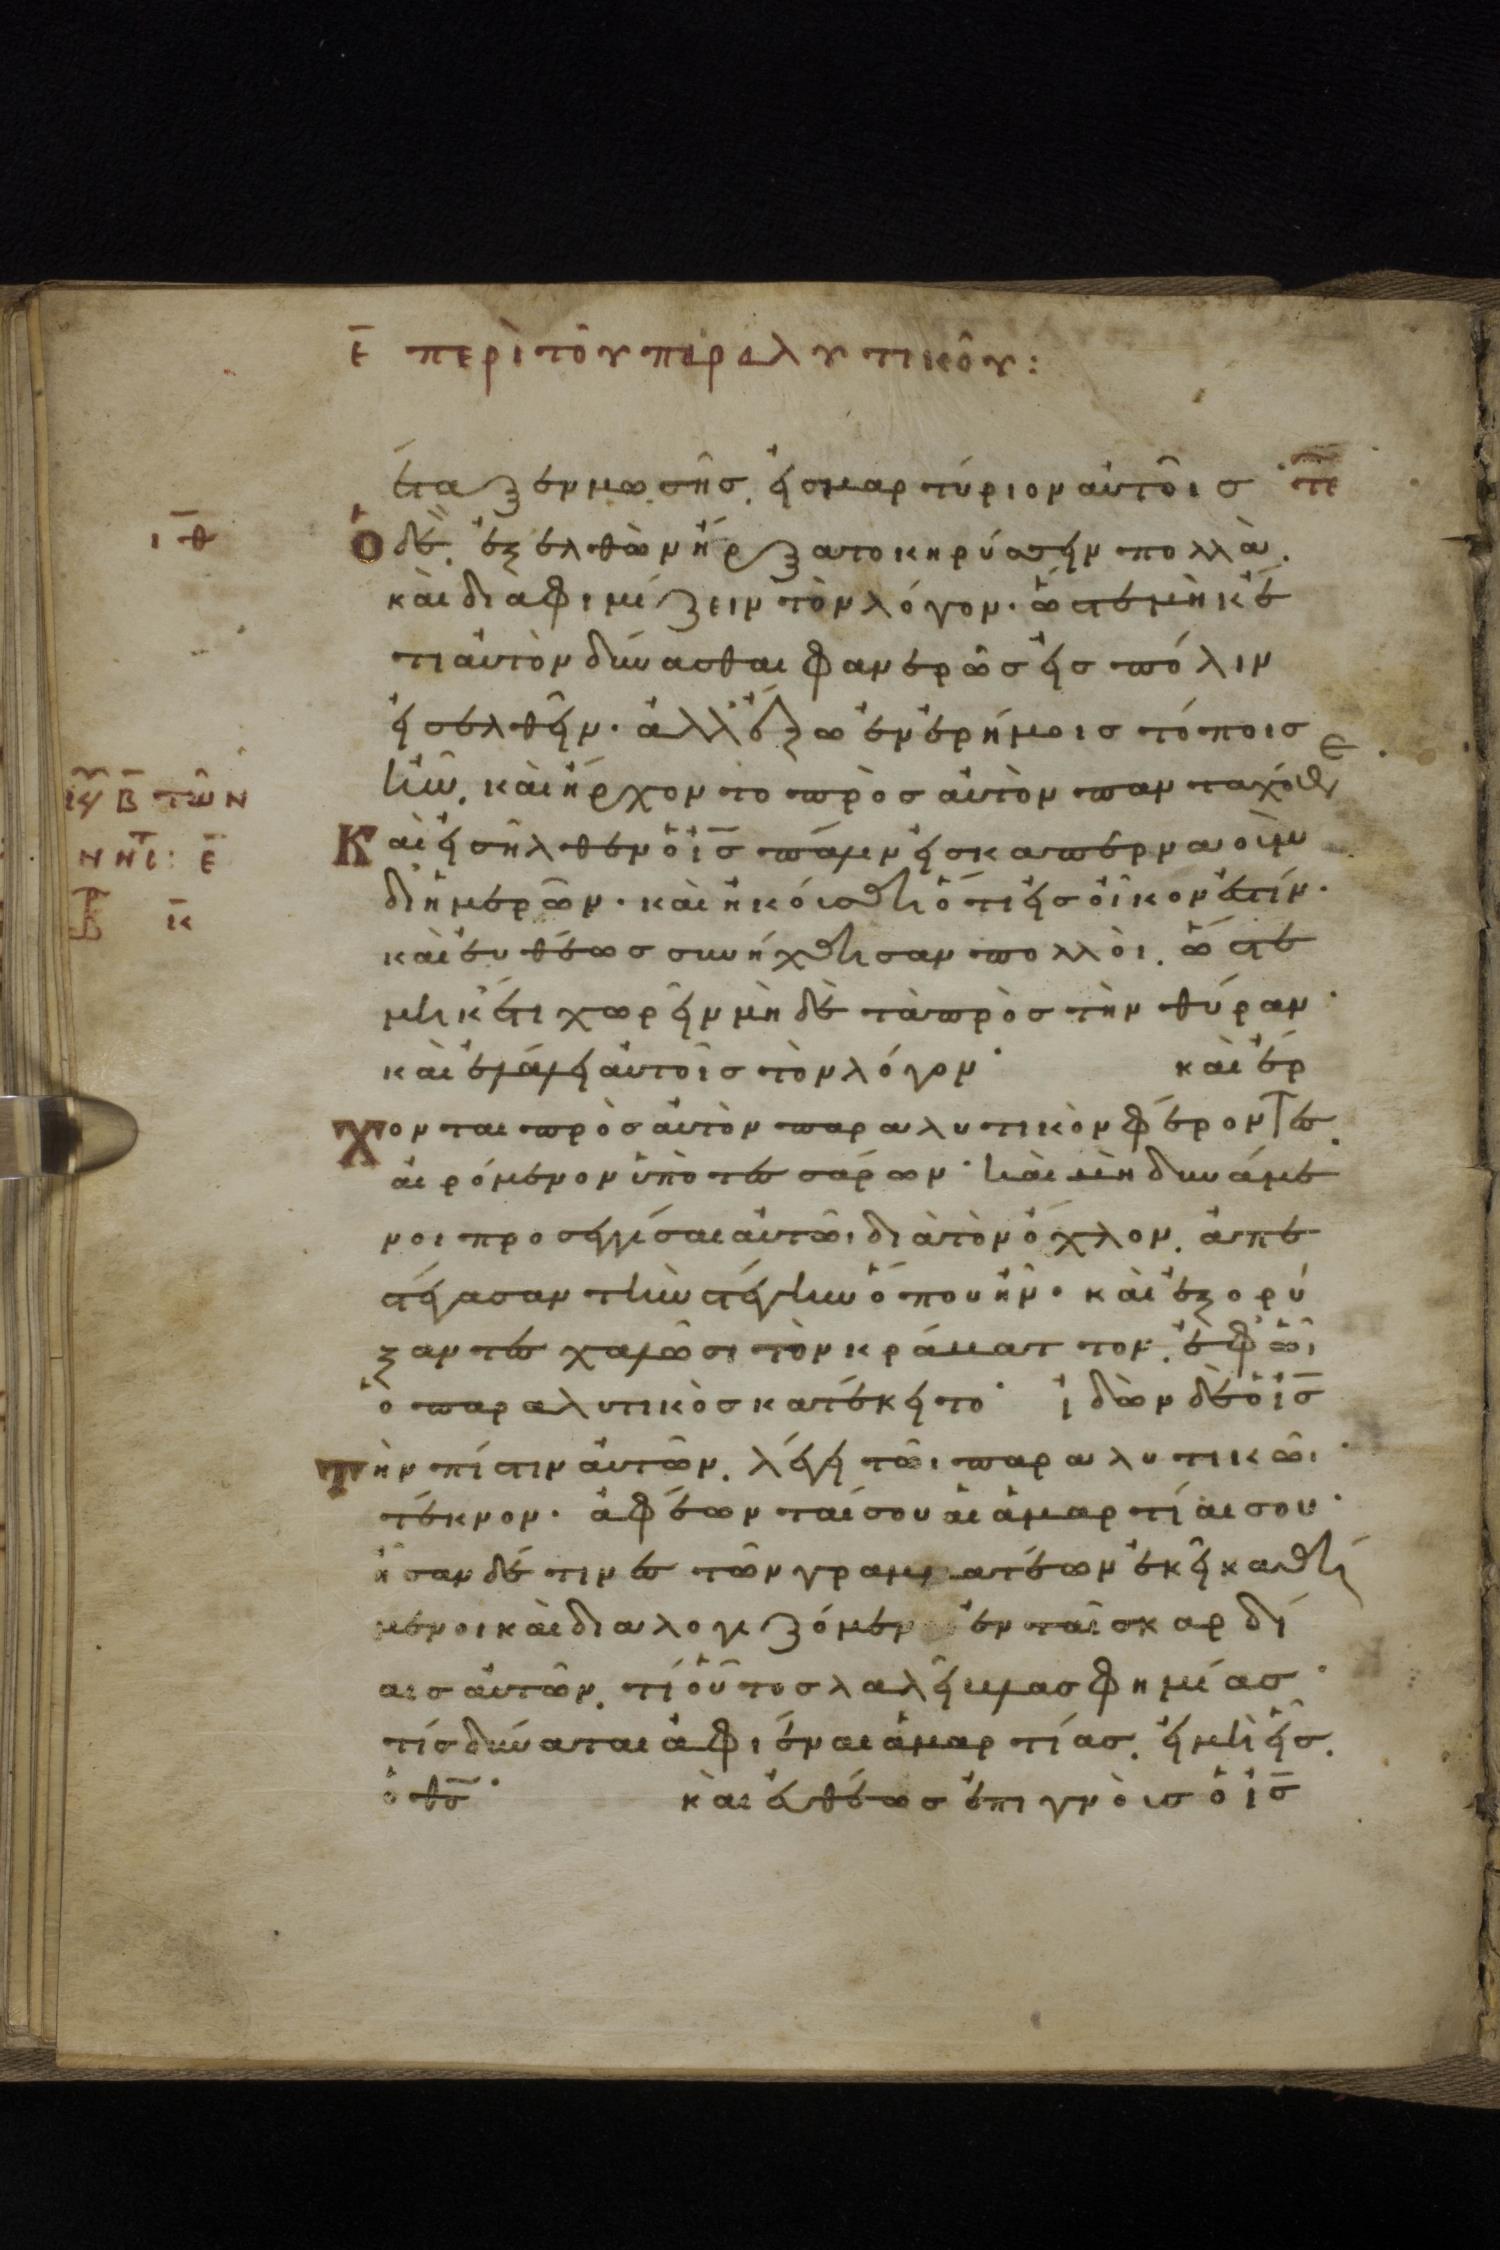 ε̅ περὶ τοῦ παραλυτικοῦ:
έταξεν μωσῆς. εἰς μαρτύριον αὐτοῖς· τε
ιθ̅ Ὁ δὲ. ἐξελθὼν ἤρξατο κηρύσσειν πολλὰ.
καὶ διαφημίζειν τὸν λόγον· ὥστε μὴκέ
τι αὐτὸν δύνασθαι φανερῶς εἰς πόλιν
εἰσελθεῖν· ἀλλ' ἔξω ἐν ἐρήμοις τόποις
ἦν. καὶ ἤρχοντο πρὸς αὐτὸν πανταχόθε
β̅ τῶν
νηστ: ε̅
Καὶ εἰσῆλθεν ὁ ι̅ς̅ πάλιν εἰς καπερναοὺμ
κ̅
δι' ἡμερῶν· καὶ ἠκούσθη ὅτι εἰς οἶκον ἐστίν·
καὶ εὐθέως συνήχθησαν πολλοὶ. ὥστε
μηκέτι χωρεῖν μὴδὲ τὰ πρὸς τὴν θύραν·
καὶ ἐλάλει αὐτοῖς τὸν λόγον· καὶ ἔρ
χονται πρὸς αὐτὸν παραλυτικὸν φέροντες.
αἰρόμενον ὑπὸ τεσσάρων· καὶ μὴ δυνάμε
νοι προσεγγίσαι αὐτῶι διὰ τὸν ὄχλον. ἀπε
στέγασαν τὴν στέγην ὅπου ἦν· καὶ ἐξορύ
ξαντες χαλῶσι τὸν κράβαττον. ἐφ' ὧι
ὁ παραλυτικὸς κατέκειτο· ἰδὼν δὲ ὁ ι̅ς̅
τὴν πίστιν αὐτῶν. λέγει τῶι παραλυτικῶι·
τέκνον· ἀφέωνταί σου αἱ ἁμαρτίαι σου·
ἦσαν δέ τινες τῶν γραμματέων ἐκεῖ καθή
μενοι καὶ διαλογιζόμεν ἐν ταῖς καρδί
αις αὐτῶν. τί οὗτος λαλεῖ βλασφημίας·
τίς δύναται ἀφιέναι ἁμαρτίας. εἰ μὴ εἷς.
ὁ θ̅ς̅· καὶ εὐθέως ἐπιγνοὺς ὁ ι̅ς̅